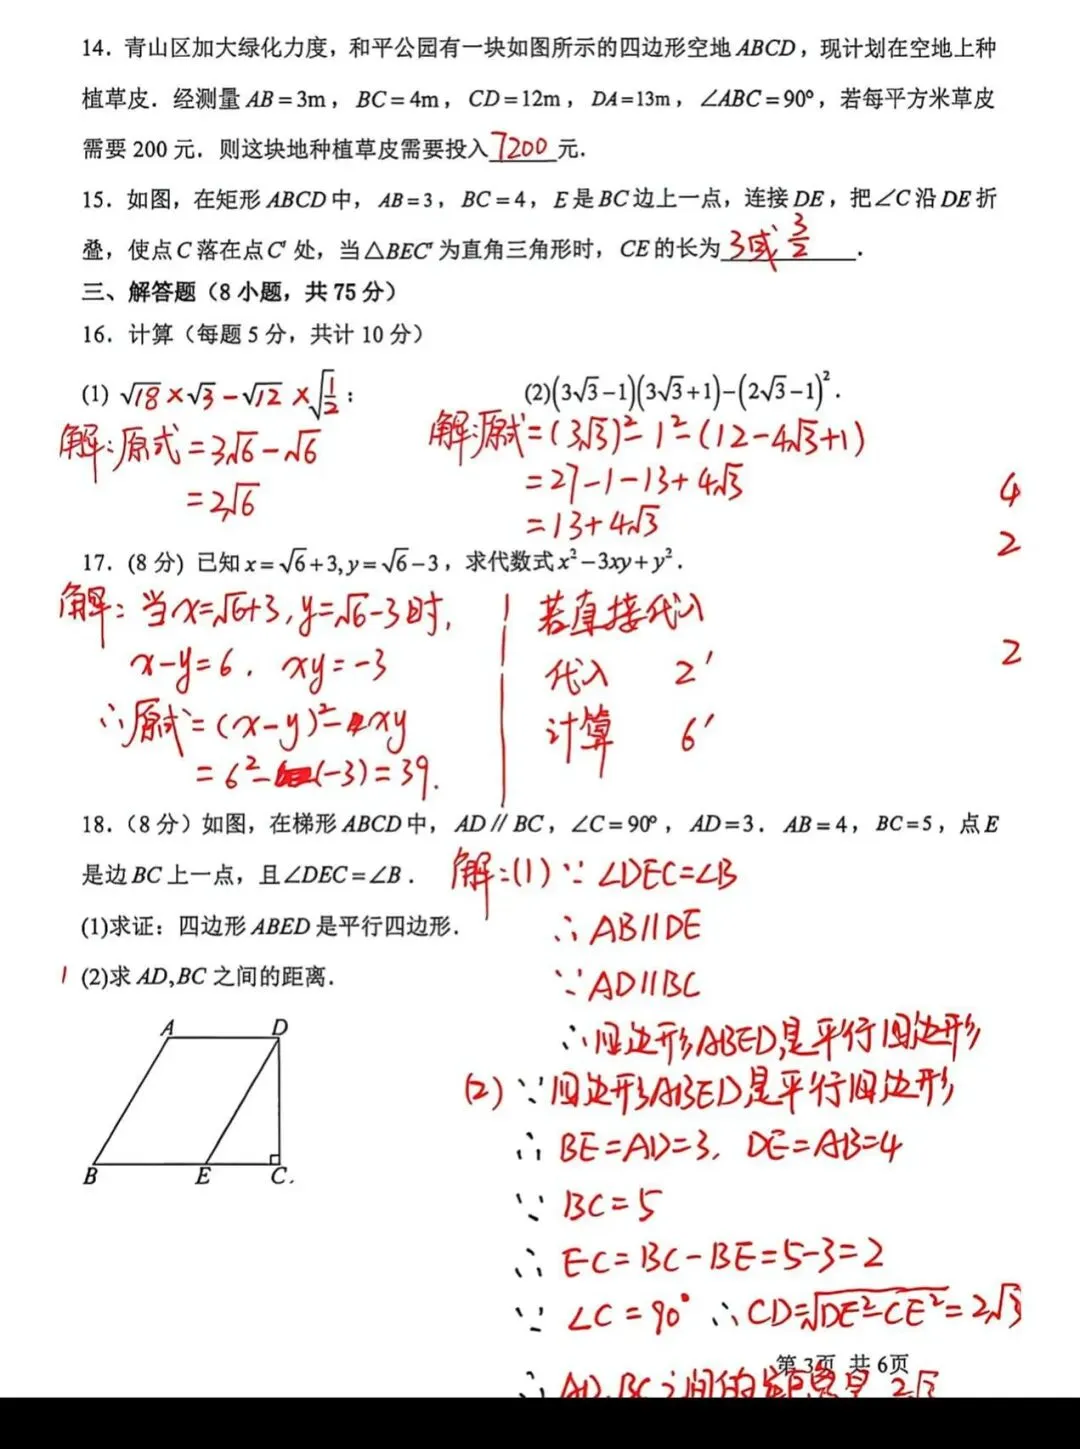 14．青山区加大绿化力度，和平公园有一块如图所示的四边形空地 ABCD，现计划在空地上种
植草皮．经测量 AB=3m，BC=4m，CD=12m，DA=13m，∠ABC=90°，若每平方米草皮
需要 200 元．则这块地种植草皮需要投入7200元．
15．如图，在矩形 ABCD 中，AB=3，BC=4，E 是 BC 边上一点，连接 DE，把∠C 沿 DE 折
叠，使点 C 落在点 C′ 处，当△BEC′ 为直角三角形时，CE 的长为3或 3/2．
三、解答题（8 小题，共 75 分）
16．计算（每题 5 分，共计 10 分）
(1) √18×√3-√12×√(1/2)；
(2)(3√3-1)(3√3+1)-(2√3-1)²．
解:原式=3√6-√6
=2√6
解:原式=(3√3)²-1²-(12-4√3+1)
=27-1-13+4√3
=13+4√3
4
2
17．(8 分) 已知 x=√6+3,y=√6-3，求代数式 x²-3xy+y²．
解：当x=√6+3,y=√6-3时,
x-y=6． xy=-3
∴原式=(x-y)²-xy
=6²-(-3)=39.
若直接代入
代入 2′
计算 6′
2
18．（8 分）如图，在梯形 ABCD 中，AD∥BC，∠C=90°，AD=3．AB=4，BC=5，点 E
是边 BC 上一点，且∠DEC=∠B．
(1)求证：四边形 ABED 是平行四边形．
1 (2)求 AD,BC 之间的距离．
A D
B E C
解:(1)∵∠DEC=∠B
∴AB∥DE
∵AD∥BC
∴四边形ABED是平行四边形
(2)∵四边形ABED是平行四边形
∴BE=AD=3, DE=AB=4
∵BC=5
∴EC=BC-BE=5-3=2
∵∠C=90° ∴CD=√(DE²-CE²)=2√3
第 3页 共 6页
∴AD,BC之间的距离是2√3